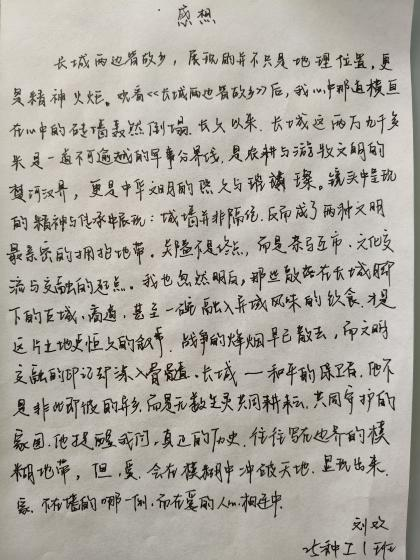 感想
长城两边皆故乡，展现的并不只是地理位置，更
是精神火炬。观看《长城两边皆故乡》后，我心中那道横亘
在心中的砖墙轰然倒塌。长久以来，长城这两万九千多
米是一道不可逾越的军事分界线，是农耕与游牧文明的
楚河汉界，更是中华文明的
璀璨。镜头中呈现
的精神与传承中展现：城墙并非隔绝，反而成了两种文明
最亲密的拥抱地带。关隘不是终点，而是茶马互市、文化交
流与交融的起点。我也忽然明白，那些散落在长城脚
下的古城，商道，甚至一碗融入异域风味的饮食，才是
这片土地更恒久的叙事。战争的烽烟早已散去，而文明
交融的印记却深入骨髓。长城——和平的保卫者，他不
是非此即彼的异乡，而是无数生灵共同耕耘，共同守护的
家园。他提醒我们，真正的历史，往往写在边界的模
糊地带，但，爱，会在模糊中冲破天地，显现出来。
家，不在墙的哪一侧，而在爱的人心相连中。
刘欢
25种工1班